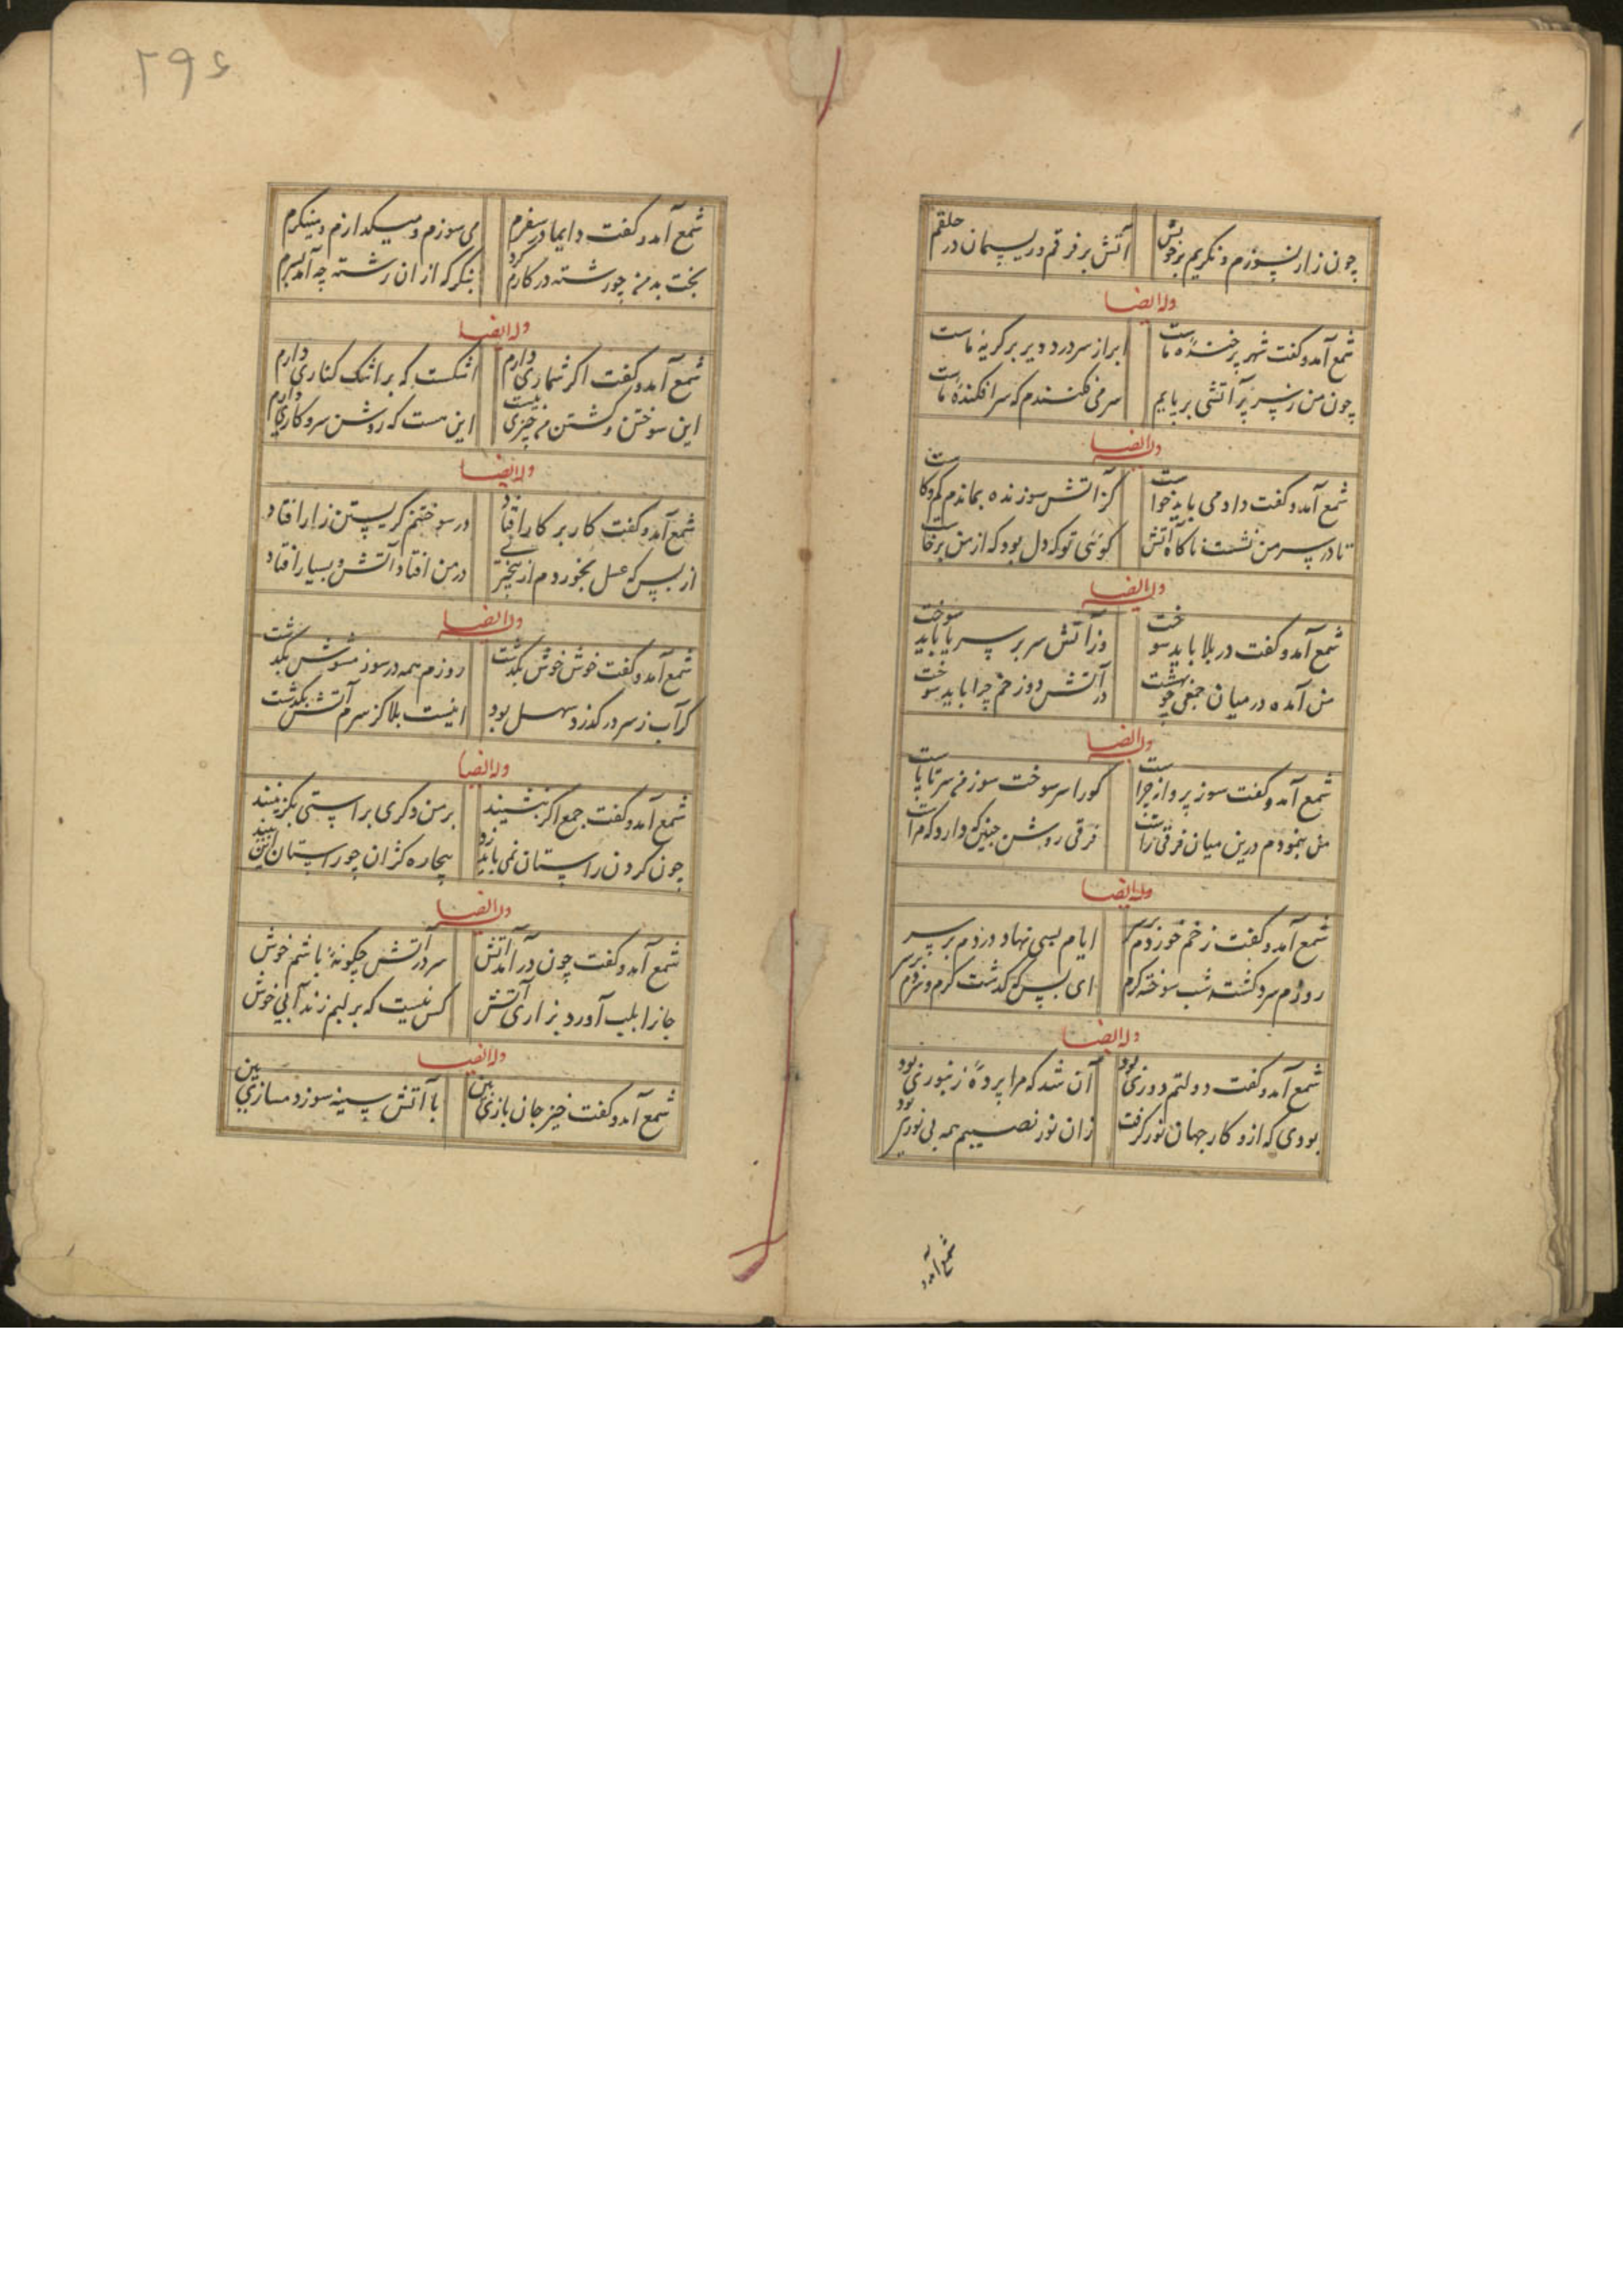 چون زار نسوزم و نگریم بر خویش آتش بر فرقم و ریسمان در حلقم
وله ایضا
شمع آمد و گفت شهر پر خندهٔ ماست ابر از سر درد دیر بر گریهٔ ماست
چون من ز سر پر آتشی بر پایم سر می فکنندم که سر افکندهٔ ماست
وله ایضا
شمع آمد و گفت داد می باید خواست کز آتش سوزنده بماندم کم و کاست
تا در سر من نشست ناگاه آتش گوئی تو که دل بود که از من برخاست
وله ایضا
شمع آمد و گفت در بلا باید سوخت وز آتش سر بر سر پا باید سوخت
من آمده در میان جمعی چو بهشت در آتش دوزخم چرا باید سوخت
وله ایضا
شمع آمد و گفت سوز پروانه چراست کو را سر سوخت سوز من سر تا پاست
من بنمودم درین میان فرقی راست فرقی روشن چنین که دارد که مراست
وله ایضا
شمع آمد و گفت زخم خوردم بر سر ایام بسی نهاد دردم بر سر
روزم سرد گشت شب سوخته گرم ای بس که گذشت گرم و سردم بر سر
وله ایضا
شمع آمد و گفت دولتم دوری بود آن شد که مرا پردهٔ زنبوری بود
بودی که ازو کار جهان نور گرفت زان نور نصیبم همه بی نوری بود
شمع آمد
۲۹۶
شمع آمد و گفت دایما در سفرم می سوزم و میگدازم و مینگرم
بخت بد من چو رشته در کارم کرد بنگر که از ان رشته چه آمد بسرم
وله ایضا
شمع آمد و گفت اگر شماری دارم اشکست که بر اشک کناری دارم
این سوختن و کشتن من چیزی نیست این هست که روشن سر و کاری دارم
وله ایضا
شمع آمد و گفت کار بر کار افتاد در سوختنم گریستن زار افتاد
از بس که عسل بخوردم از بیخبری در من افتاد آتش و بسیار افتاد
وله ایضا
شمع آمد و گفت خوش خوش بگذشت روزم همه در سوز مشوش بگذشت
گر آب ز سر در گذرد سهل بود اینست بلا کز سرم آتش بگذشت
وله ایضا
شمع آمد و گفت جمع اگر بنشینند بر من دگری براستی نگزینند
چون گردن راستان نمی باید زد بیچاره کژان چو راستان این بینند
وله ایضا
شمع آمد و گفت چون در آمد آتش سر در آتش چگونهٔ باشم خوش
جانرا بلب آورد بزاری آتش کس نیست که بر لبم زند آبی خوش
وله ایضا
شمع آمد و گفت خیز جان بازی بین با آتش سینه سوز دمسازی بین